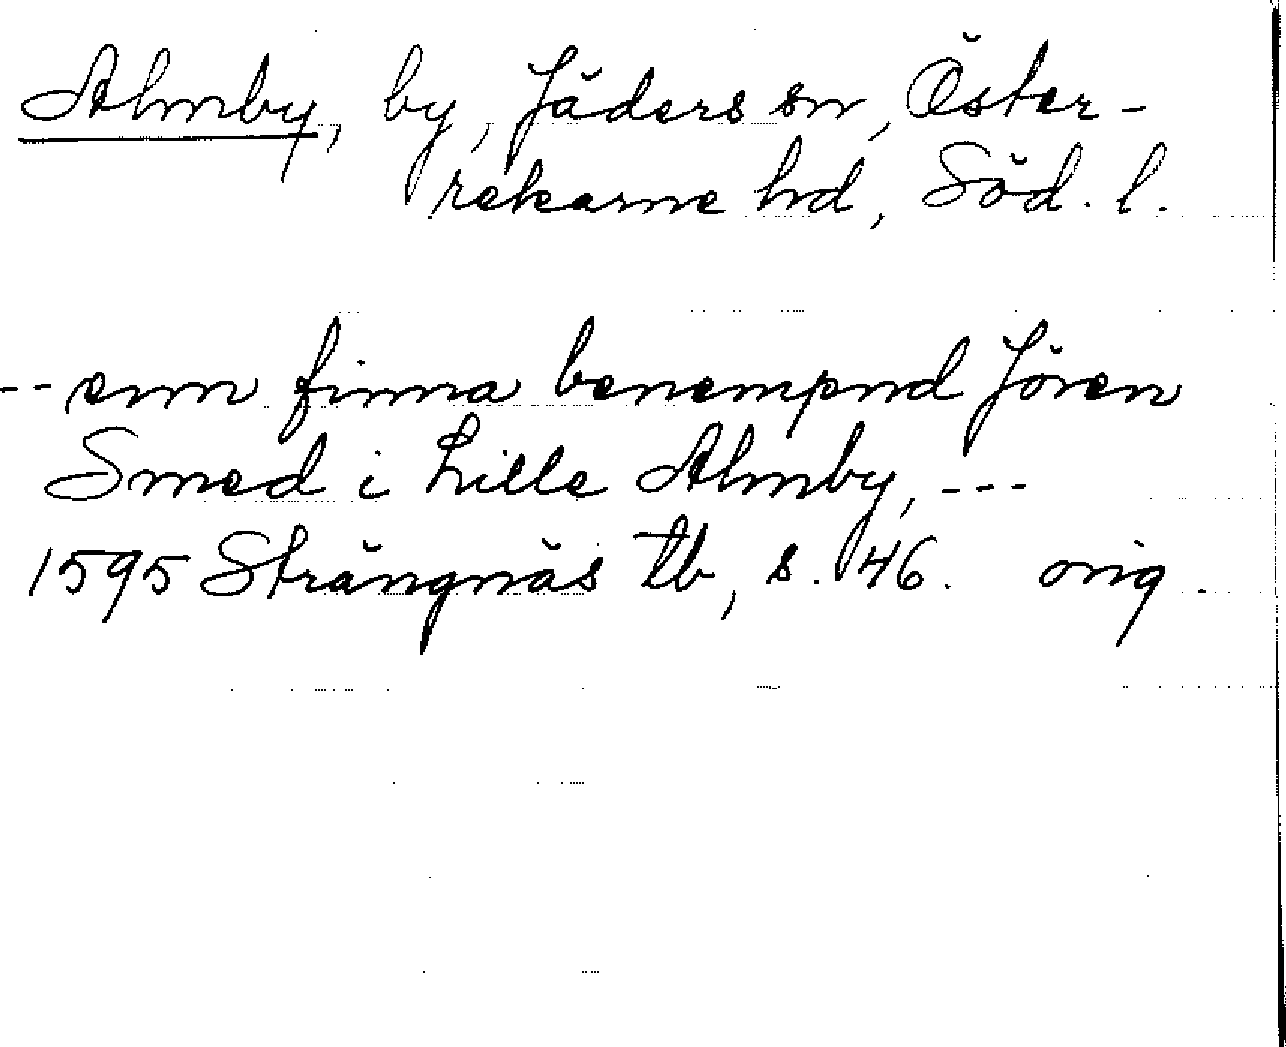 Almby, by, Jäders sn, Öster-
rekarne hd, Söd. l.
-- enn finna benempnd Jören
Smed i Lille Almby, ---
1595 Strängnäs tb, s. 46. orig.